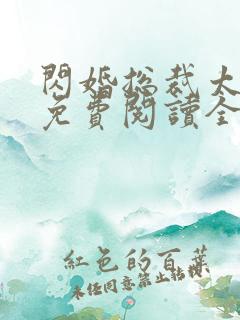 閃婚总裁太
免費閱讀全
紅色的百葉
未任同意禁止轉載